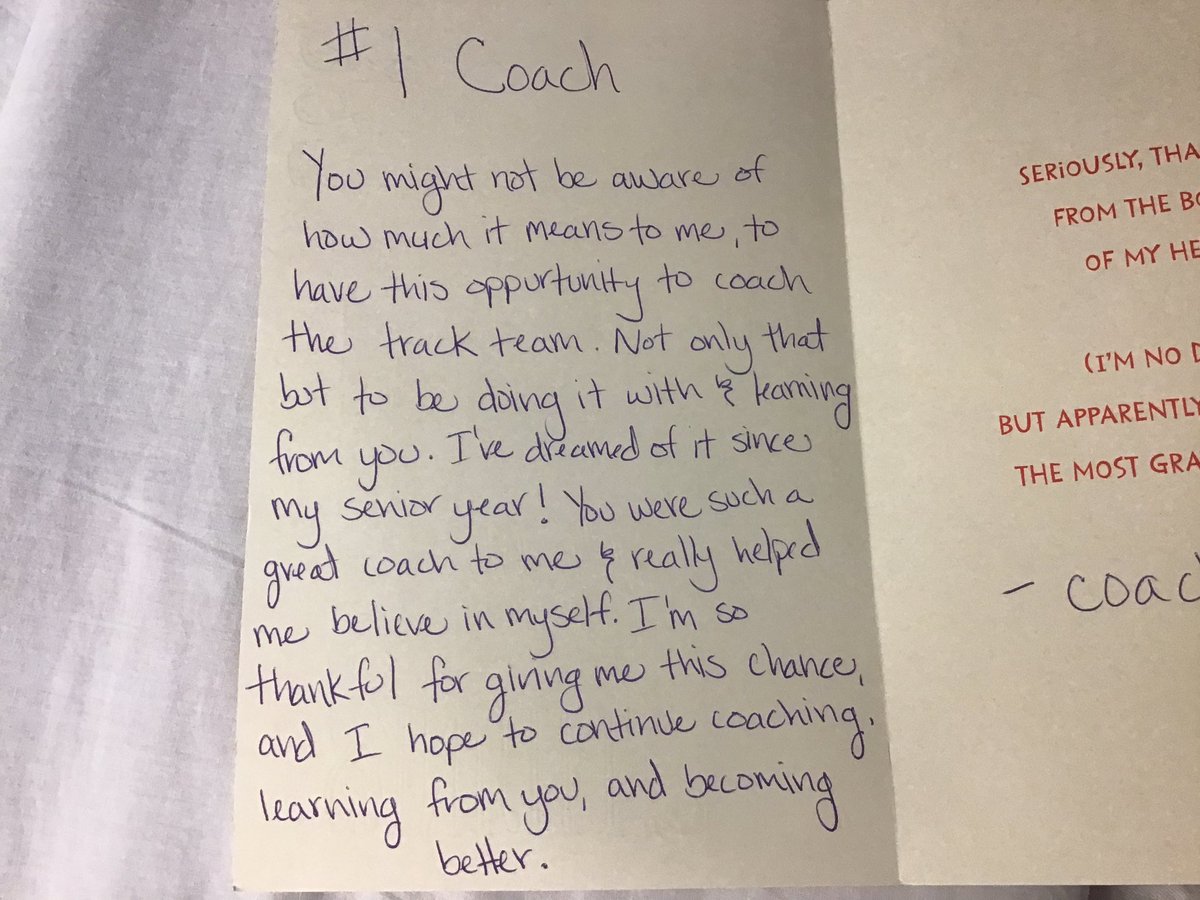 #1 Coach
You might not be aware of
how much it means to me, to
have this oppurtunity to coach
the track team. Not only that
but to be doing it with & learning
from you. I've dreamed of it since
my senior year! You were such a
great coach to me & really helped
me believe in myself. I'm so
thankful for giving me this chance,
and I hope to continue coaching,
learning from you, and becoming
better.
SERIOUSLY, THA
FROM THE BO
OF MY HE
(I'M NO D
BUT APPARENTLY
THE MOST GRA
- coac